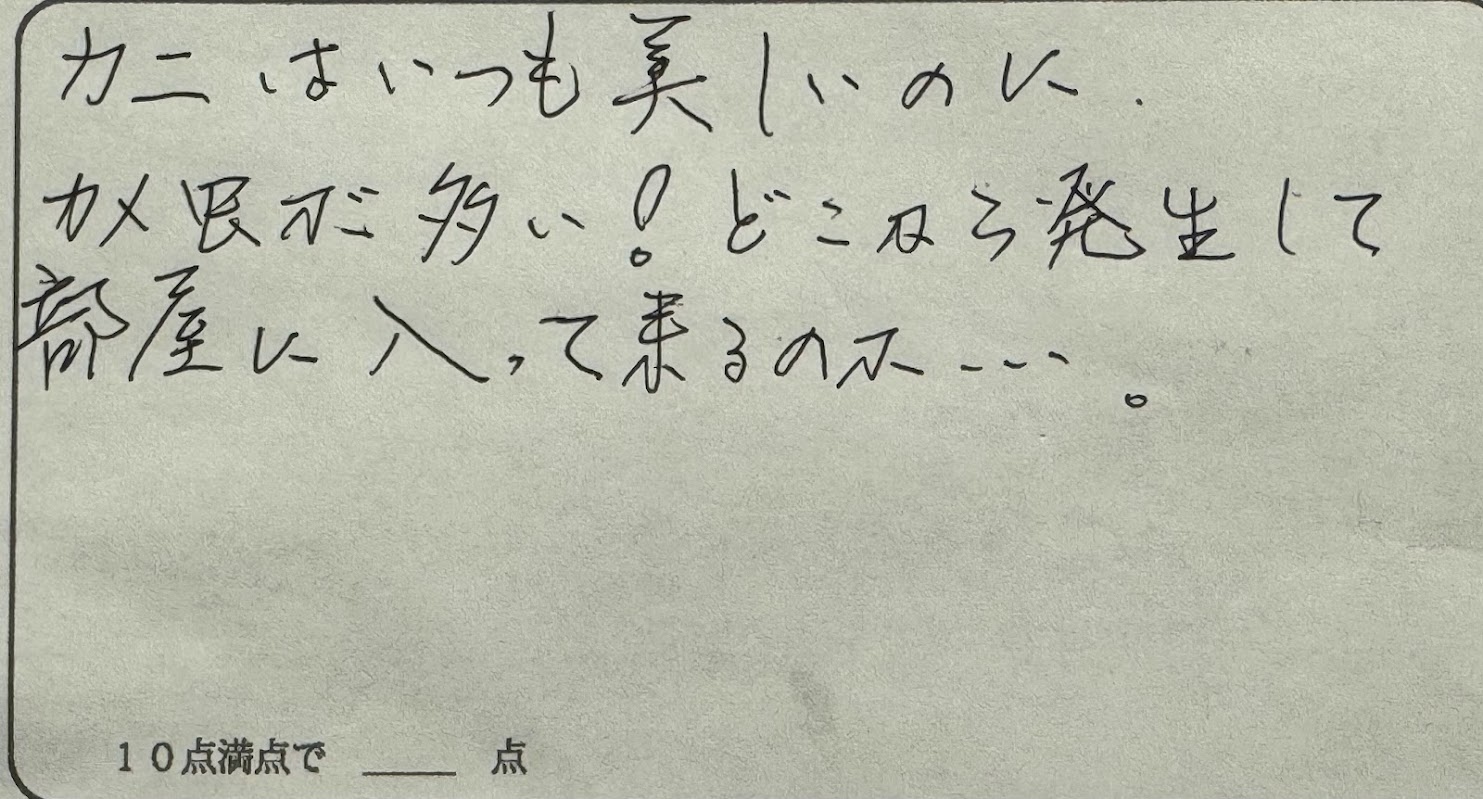 カニはいつも美しいのに.
カメ虫が多い!どこから発生して
部屋に入って来るのか---。
10点満点で ____ 点